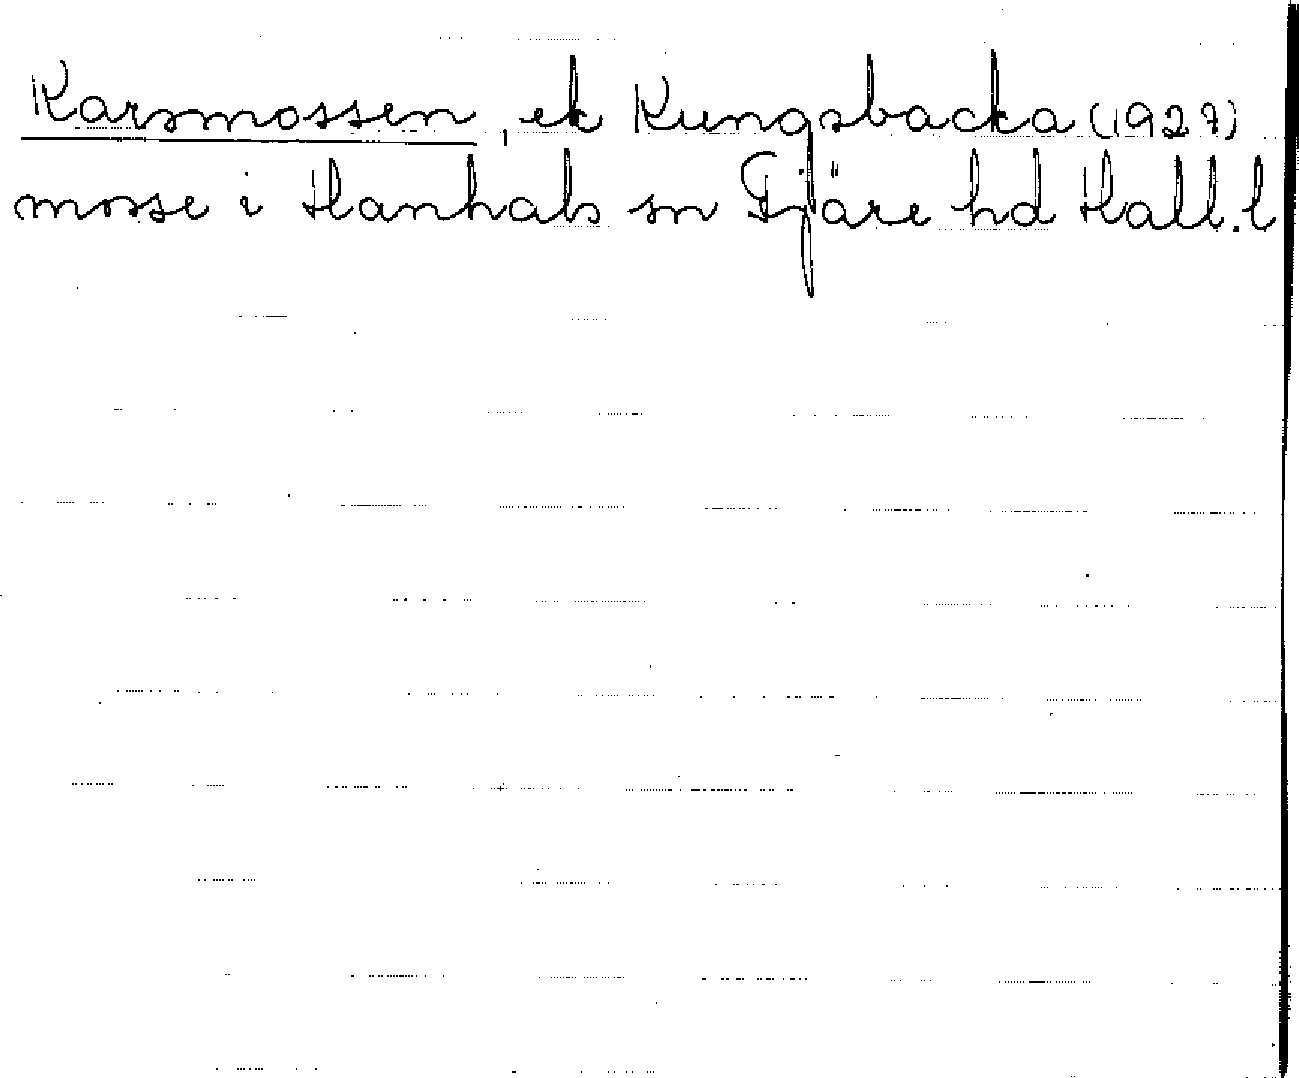 Karsmossen, ek Kungsbacka (1927)
mosse i Hanhals sn Fjäre hd Hall. l